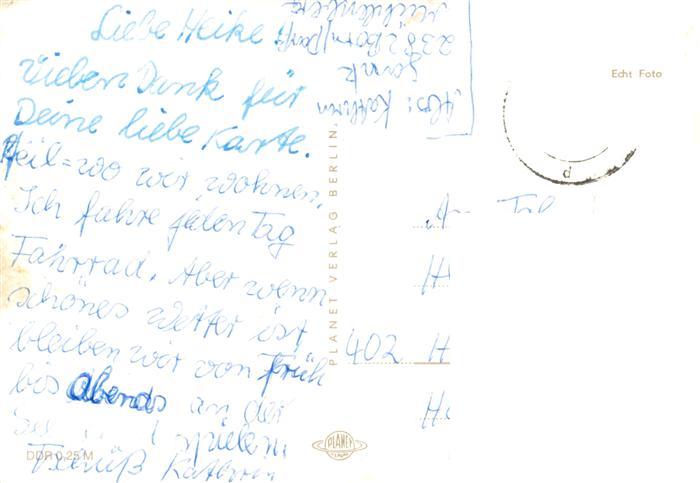 Liebe Heike
vielen Dank für
Deine liebe Karte.
Pfeil = wo wir wohnen.
Ich fahre jeden Tag
Fahrrad. Aber wenn
schönes Wetter ist
bleiben wir von Früh
bis abends an der
spielen.
Kathrin
Abs: Kathrin
2382 Born/Darß
PLANET VERLAG BERLIN
Echt Foto
402 H
DDR 0,25 M
PLANET